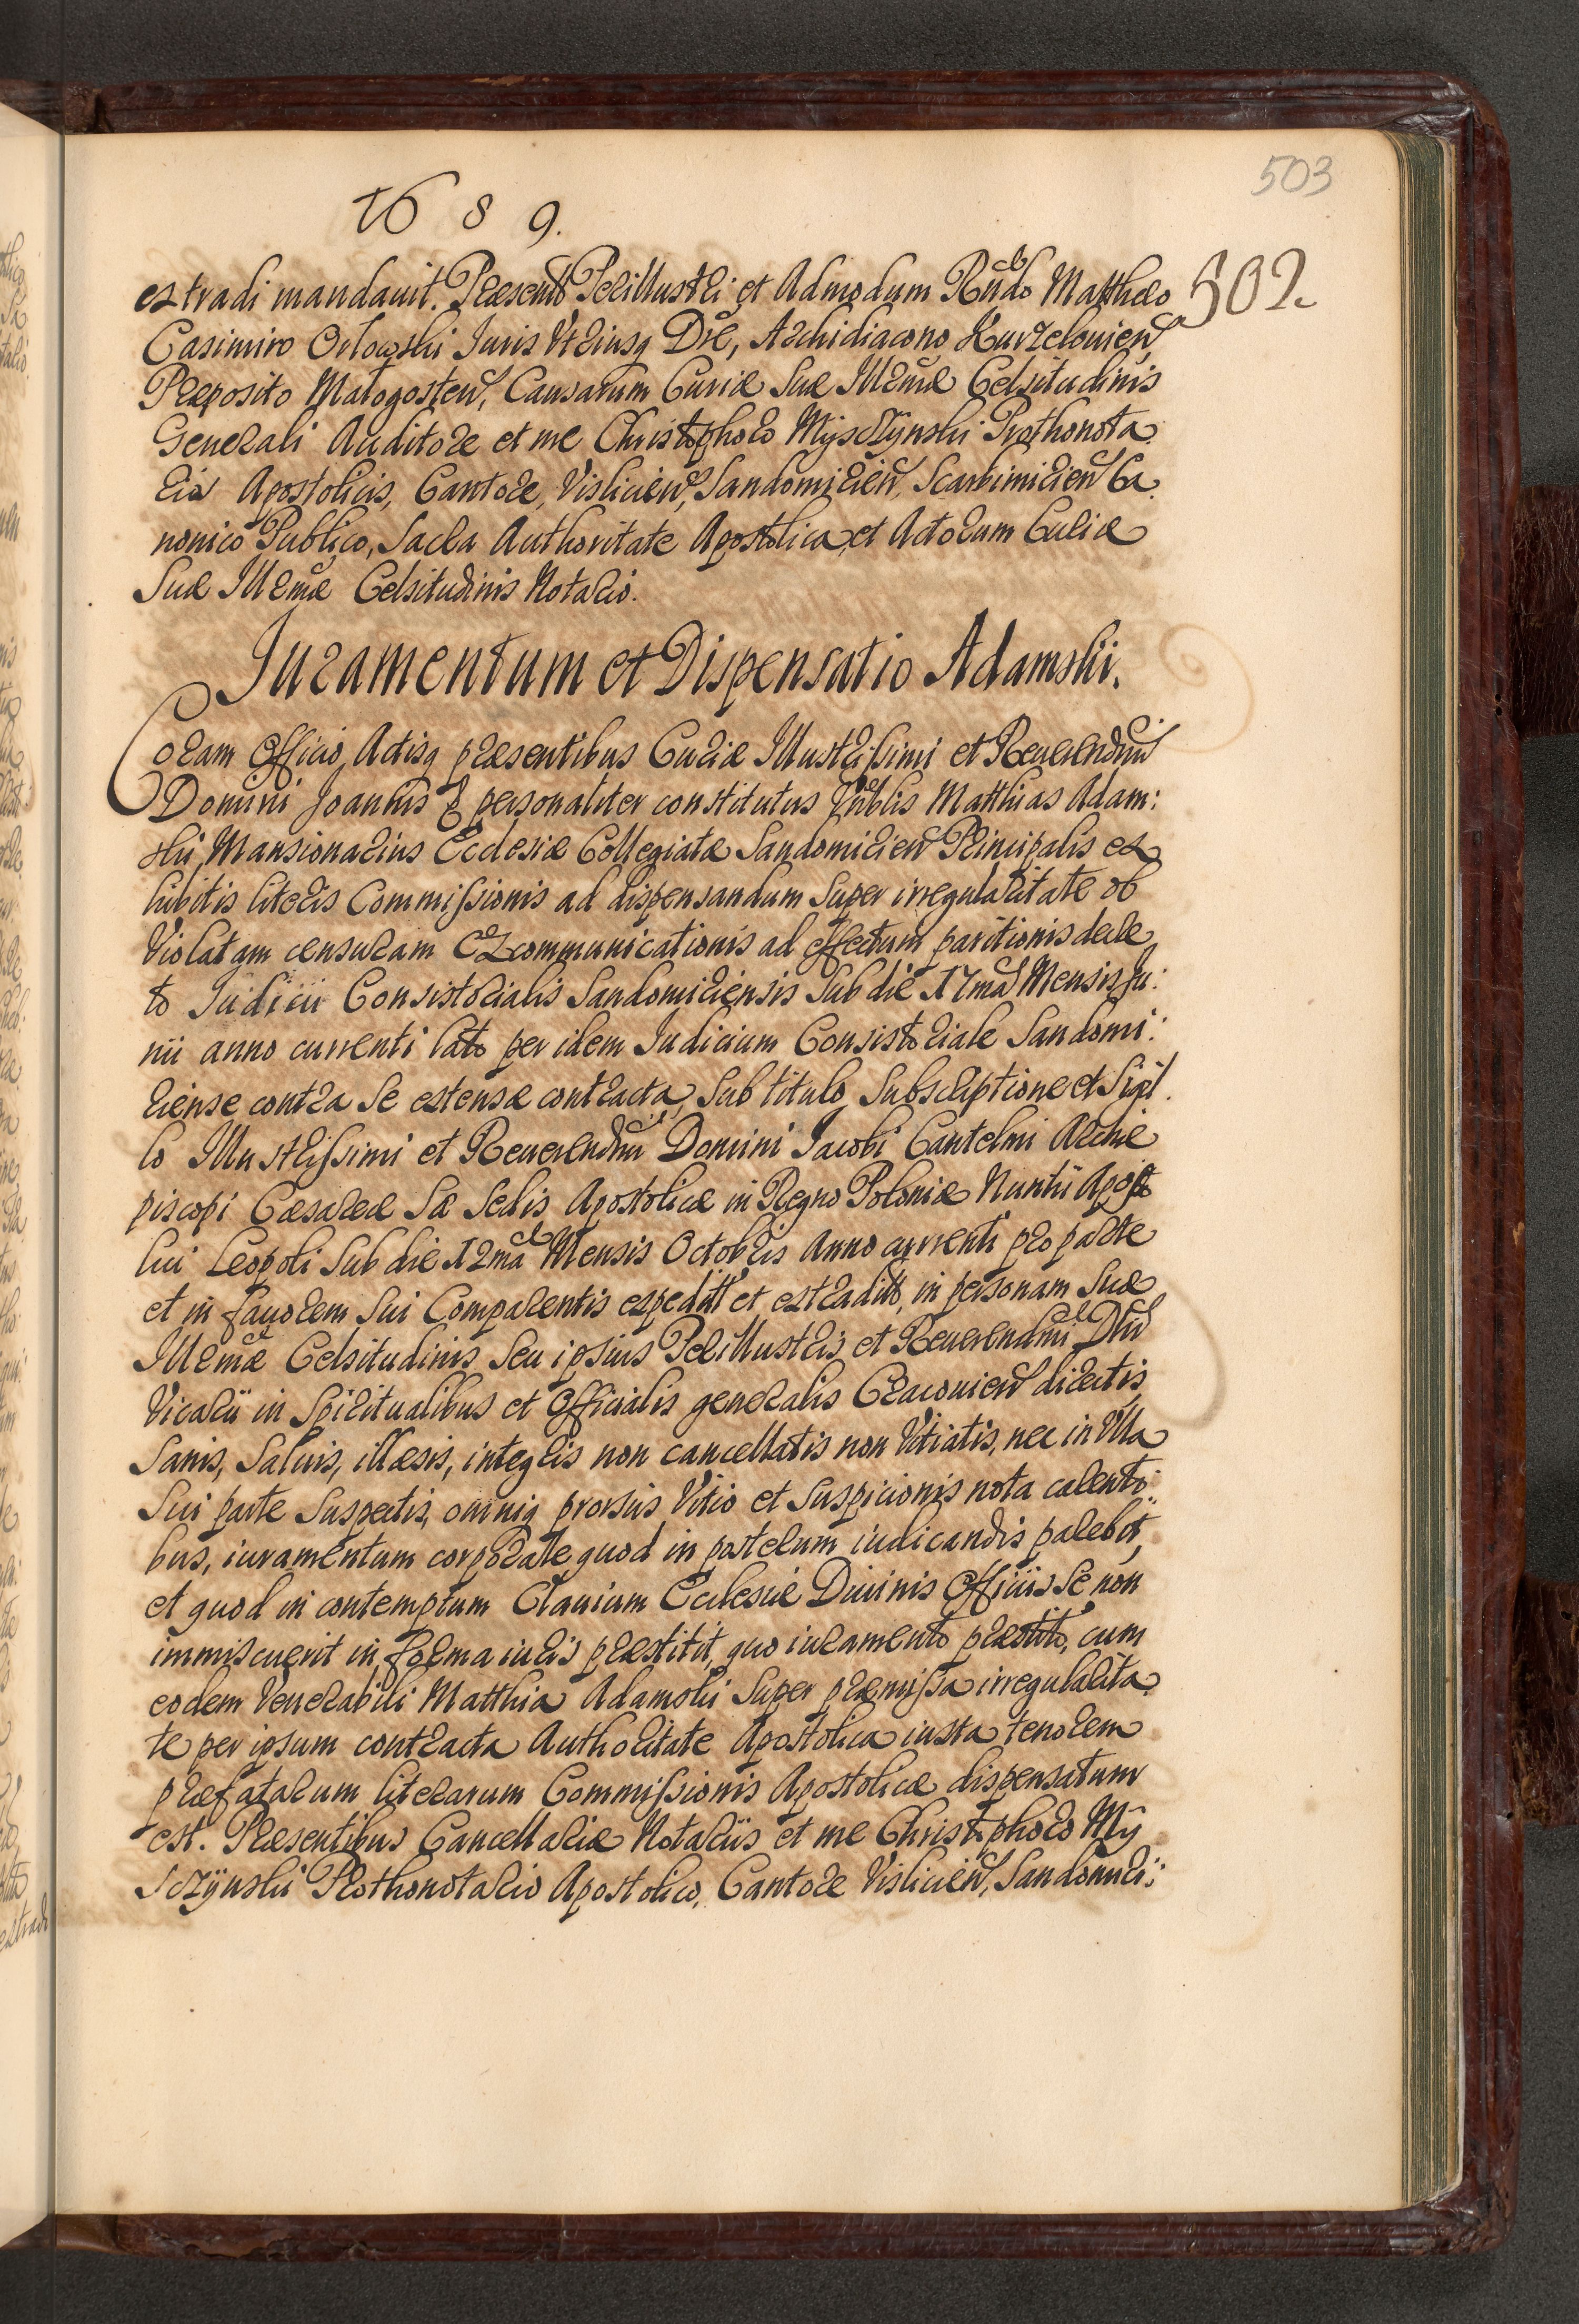 503
1689.
502
extradi mandauit. Præsentb Perillustri et Admodum Rndo Matthæo
Casimiro Orłowski Iuris Vtriusq Dre, Archidiacono Kurzelouien,
Præposito Małogosten, Causarum Curiæ Suæ Illmæ Celsitudinis
Generali Auditore et me Christophoro Myszczÿnski Prothonota
rio Apostolicis, Cantore, Vislicien, Sandomirien, Scarbimirien Ca
nonico Publico, Sacra Authoritate Apostolica et Actorum Curiæ
Suæ Illmæ Celsitudinis Notario.
Iuramentum et Dispensatio Adamski.
Coram Officio, Actisq præsentibus Curiæ Illustrissimi et Reuerendmi
Domini Joannis personaliter constitutus Matthias Adam:
ski, Mansionarius Ecclesiæ Collegiatæ Sandomirien Principalis ex
hibitis literis Commissionis ad dispensandum super irregularitate ob
Violatam censuram Excommunicationis ad effectum paritionis decre
to Iudicii Consistorialis Sandomiriensis Sub die 17ma Mensis Iu:
nii anno currenti lato per idem Iudicium Consistoriale Sandomi:
riense contra Se extensæ contracta, Sub titulo, Subscriptione et Sigil
lo Illustrissimi et Reuerendmi Domini Iacobi Cantelmi Archie
piscopi Cæsareæ Sæ Sedis Apostolicæ in Regno Poloniæ Nuntii Aposto
lici Leopoli Sub die 12ma Mensis Octobris Anno currenti pro parte
et in fauorem Sui Comparentis expeditt et extraditt, in personam Suæ
Illmæ Celsitudinis Seu ipsius Perillustris et Reuerendmi Dni
Vicarii in Spiritualibus et Officialis generalis Cracouien directis,
Sanis, Saluis, illæsis, integris non cancellatis non Vitiatis, nec in Vlla
Sui parte Suspectis, omniq prorsus Vitio et Suspicionis nota carenti:
bus, iuramentum corporale quod in posterum iudicandis parebit,
et quod in contemptum Clauium Ecclesiæ Diuinis Officiis Se non
immiscuerit in forma iuris præstitit, quo iuramento præstito, cum
eodem Venerabili Matthia Adamski Super præmissa irregularita
te per ipsum contracta Authoritate Apostolica iuxta tenorem
præfatarum literarum Commissionis Apostolicæ dispensatum
est. Præsentibus Cancellariæ Notariis et me Christophoro My
sczÿnski Prothonotario Apostolico, Cantore Vislicien, Sandomiri: